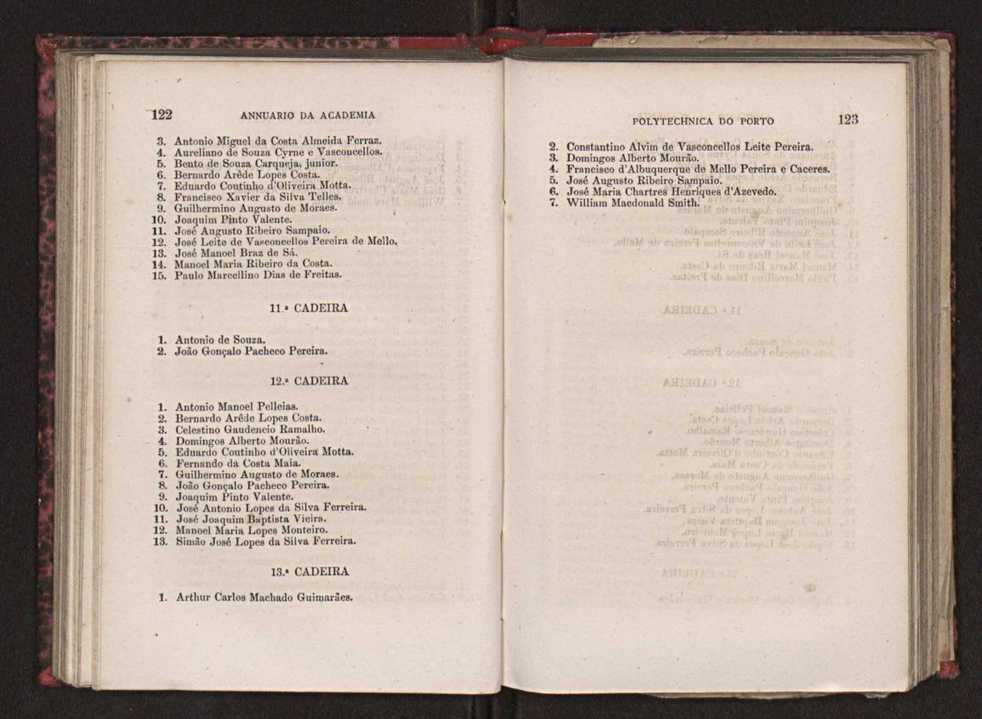 122
ANNUARIO DA ACADEMIA
3. Antonio Miguel da Costa Almeida Ferraz.
4. Aureliano de Souza Cyrne e Vasconcellos.
5. Bento de Souza Carqueja, junior.
6. Bernardo Arêde Lopes Costa.
7. Eduardo Coutinho d'Oliveira Motta.
8. Francisco Xavier da Silva Telles.
9. Guilhermino Augusto de Moraes.
10. Joaquim Pinto Valente.
11. José Augusto Ribeiro Sampaio.
12. José Leite de Vasconcellos Pereira de Mello.
13. José Manoel Braz de Sá.
14. Manoel Maria Ribeiro da Costa.
15. Paulo Marcellino Dias de Freitas.
11.ª CADEIRA
1. Antonio de Souza.
2. João Gonçalo Pacheco Pereira.
12.ª CADEIRA
1. Antonio Manoel Pelleias.
2. Bernardo Arêde Lopes Costa.
3. Celestino Gaudencio Ramalho.
4. Domingos Alberto Mourão.
5. Eduardo Coutinho d'Oliveira Motta.
6. Fernando da Costa Maia.
7. Guilhermino Augusto de Moraes.
8. João Gonçalo Pacheco Pereira.
9. Joaquim Pinto Valente.
10. José Antonio Lopes da Silva Ferreira.
11. José Joaquim Baptista Vieira.
12. Manoel Maria Lopes Monteiro.
13. Simão José Lopes da Silva Ferreira.
13.ª CADEIRA
1. Arthur Carlos Machado Guimarães.
POLYTECHNICA DO PORTO
123
2. Constantino Alvim de Vasconcellos Leite Pereira.
3. Domingos Alberto Mourão.
4. Francisco d'Albuquerque de Mello Pereira e Caceres.
5. José Augusto Ribeiro Sampaio.
6. José Maria Chartres Henriques d'Azevedo.
7. William Macdonald Smith.